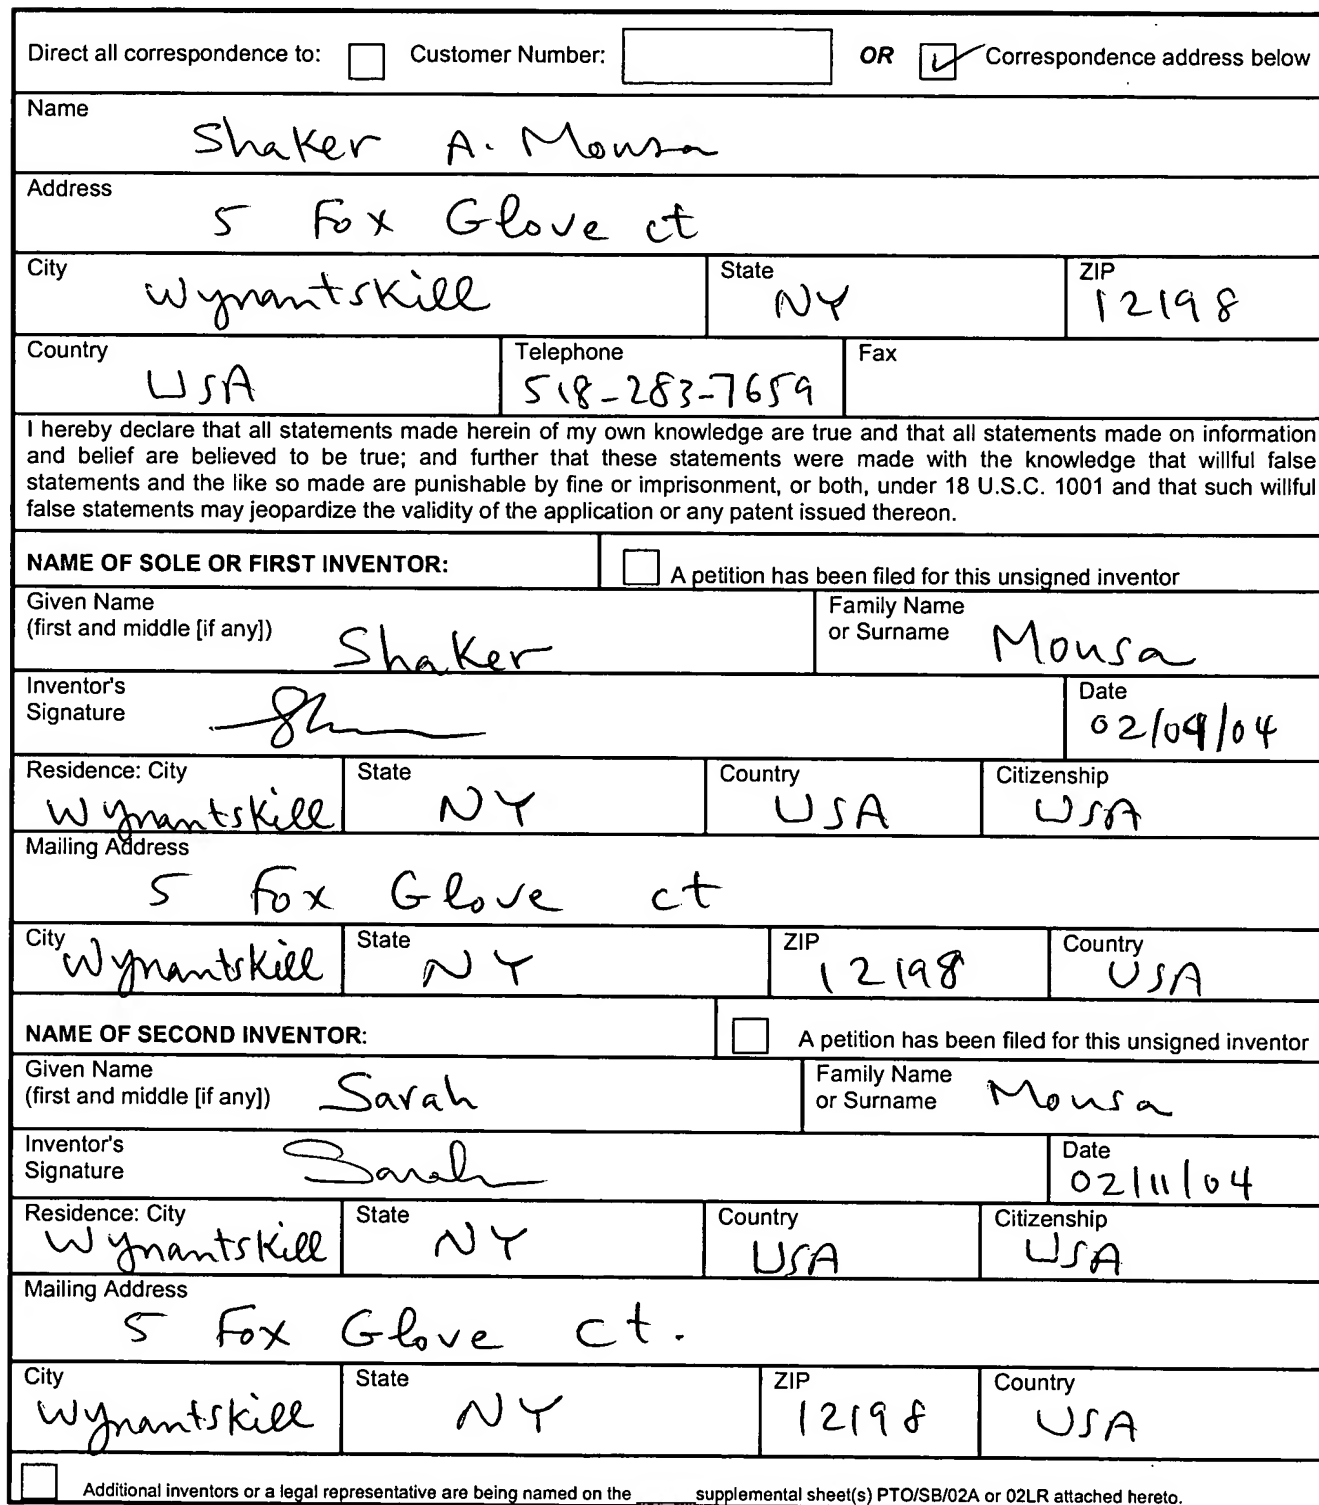 Direct all correspondence to: Customer Number: OR Correspondence address below
Name
Shaker A. Mousa
Address
5 Fox Glove ct
City State ZIP
Wynantskill NY 12198
Country Telephone Fax
USA 518-283-7659
I hereby declare that all statements made herein of my own knowledge are true and that all statements made on information
and belief are believed to be true; and further that these statements were made with the knowledge that willful false
statements and the like so made are punishable by fine or imprisonment, or both, under 18 U.S.C. 1001 and that such willful
false statements may jeopardize the validity of the application or any patent issued thereon.
NAME OF SOLE OR FIRST INVENTOR: A petition has been filed for this unsigned inventor
Given Name Family Name
(first and middle [if any]) Shaker or Surname Mousa
Inventor's Date
Signature 02/09/04
Residence: City State Country Citizenship
Wynantskill NY USA USA
Mailing Address
5 Fox Glove ct
City State ZIP Country
Wynantskill NY 12198 USA
NAME OF SECOND INVENTOR: A petition has been filed for this unsigned inventor
Given Name Family Name
(first and middle [if any]) Sarah or Surname Mousa
Inventor's Date
Signature Sarah 02/11/04
Residence: City State Country Citizenship
Wynantskill NY USA USA
Mailing Address
5 Fox Glove ct.
City State ZIP Country
Wynantskill NY 12198 USA
Additional inventors or a legal representative are being named on the _____ supplemental sheet(s) PTO/SB/02A or 02LR attached hereto.